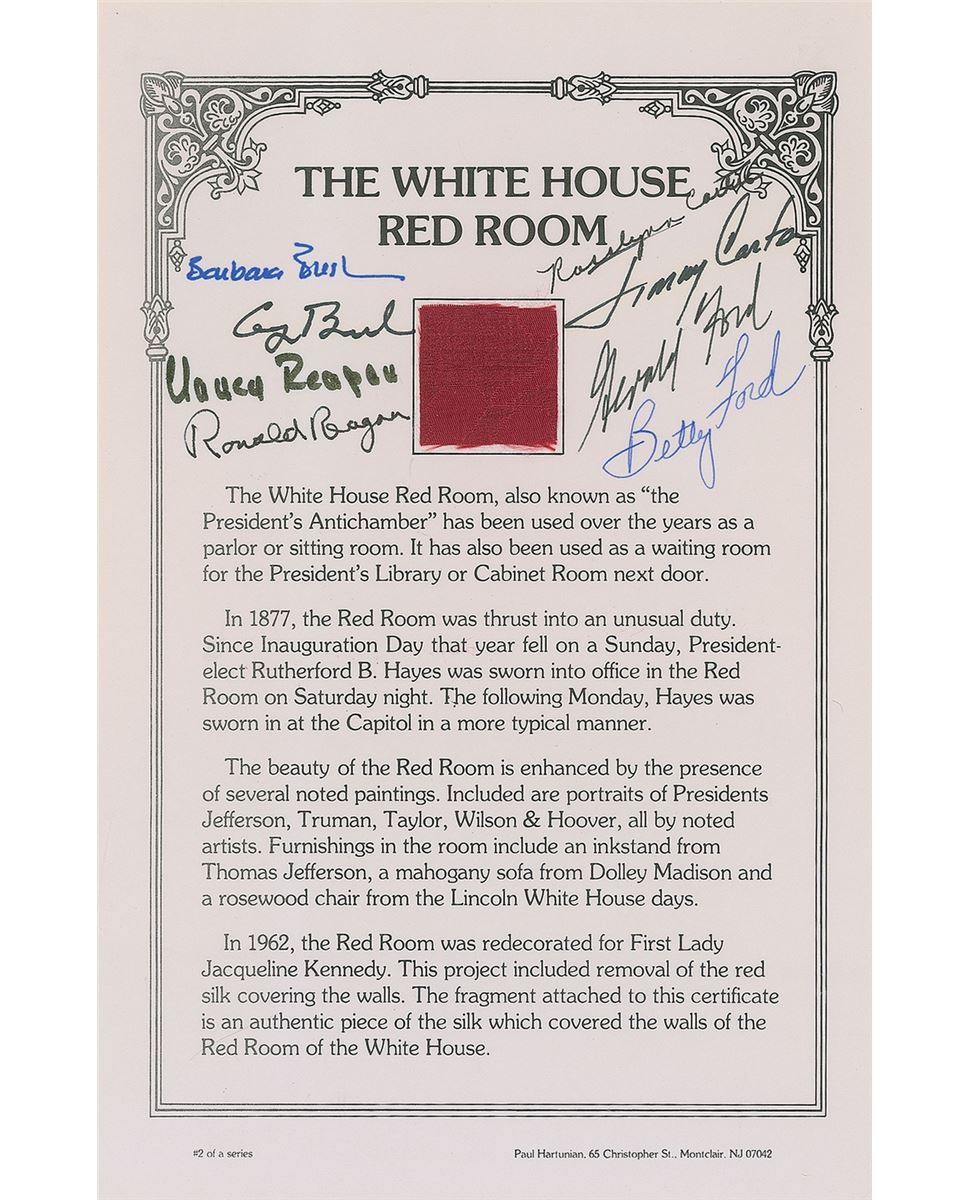 THE WHITE HOUSE
RED ROOM
Rosalynn Carter
Barbara Bush
Jimmy Carter
G Bush
Gerald Ford
Nancy Reagan
Ronald Reagan
Betty Ford
The White House Red Room, also known as “the
President’s Antichamber” has been used over the years as a
parlor or sitting room. It has also been used as a waiting room
for the President’s Library or Cabinet Room next door.
In 1877, the Red Room was thrust into an unusual duty.
Since Inauguration Day that year fell on a Sunday, President-
elect Rutherford B. Hayes was sworn into office in the Red
Room on Saturday night. The following Monday, Hayes was
sworn in at the Capitol in a more typical manner.
The beauty of the Red Room is enhanced by the presence
of several noted paintings. Included are portraits of Presidents
Jefferson, Truman, Taylor, Wilson & Hoover, all by noted
artists. Furnishings in the room include an inkstand from
Thomas Jefferson, a mahogany sofa from Dolley Madison and
a rosewood chair from the Lincoln White House days.
In 1962, the Red Room was redecorated for First Lady
Jacqueline Kennedy. This project included removal of the red
silk covering the walls. The fragment attached to this certificate
is an authentic piece of the silk which covered the walls of the
Red Room of the White House.
#2 of a series
Paul Hartunian, 65 Christopher St., Montclair, NJ 07042